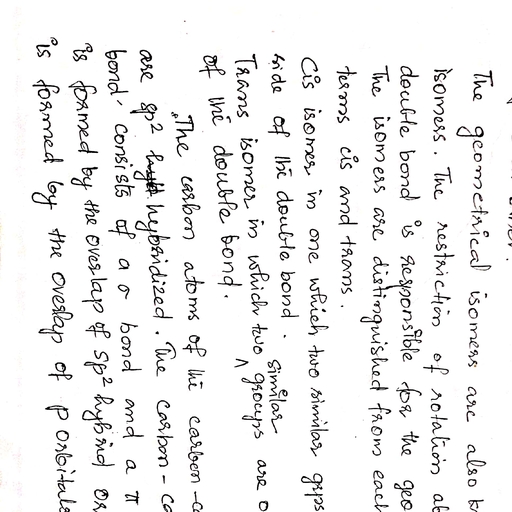 The geometrical isomers are also k
isomers. The restriction of rotation ab
double bond is responsible for the geo
The isomers are distinguished from each
terms cis and trans.
Cis isomer in one which two similar grps
side of the double bond.
Trans isomer in which two similar groups are o
of the double bond.
"The carbon atoms of the carbon-c
are sp² hybridized. The carbon-ca
bond, consists of a σ bond and a π
is formed by the overlap of sp² hybrid or
is formed by the overlap of p orbitals